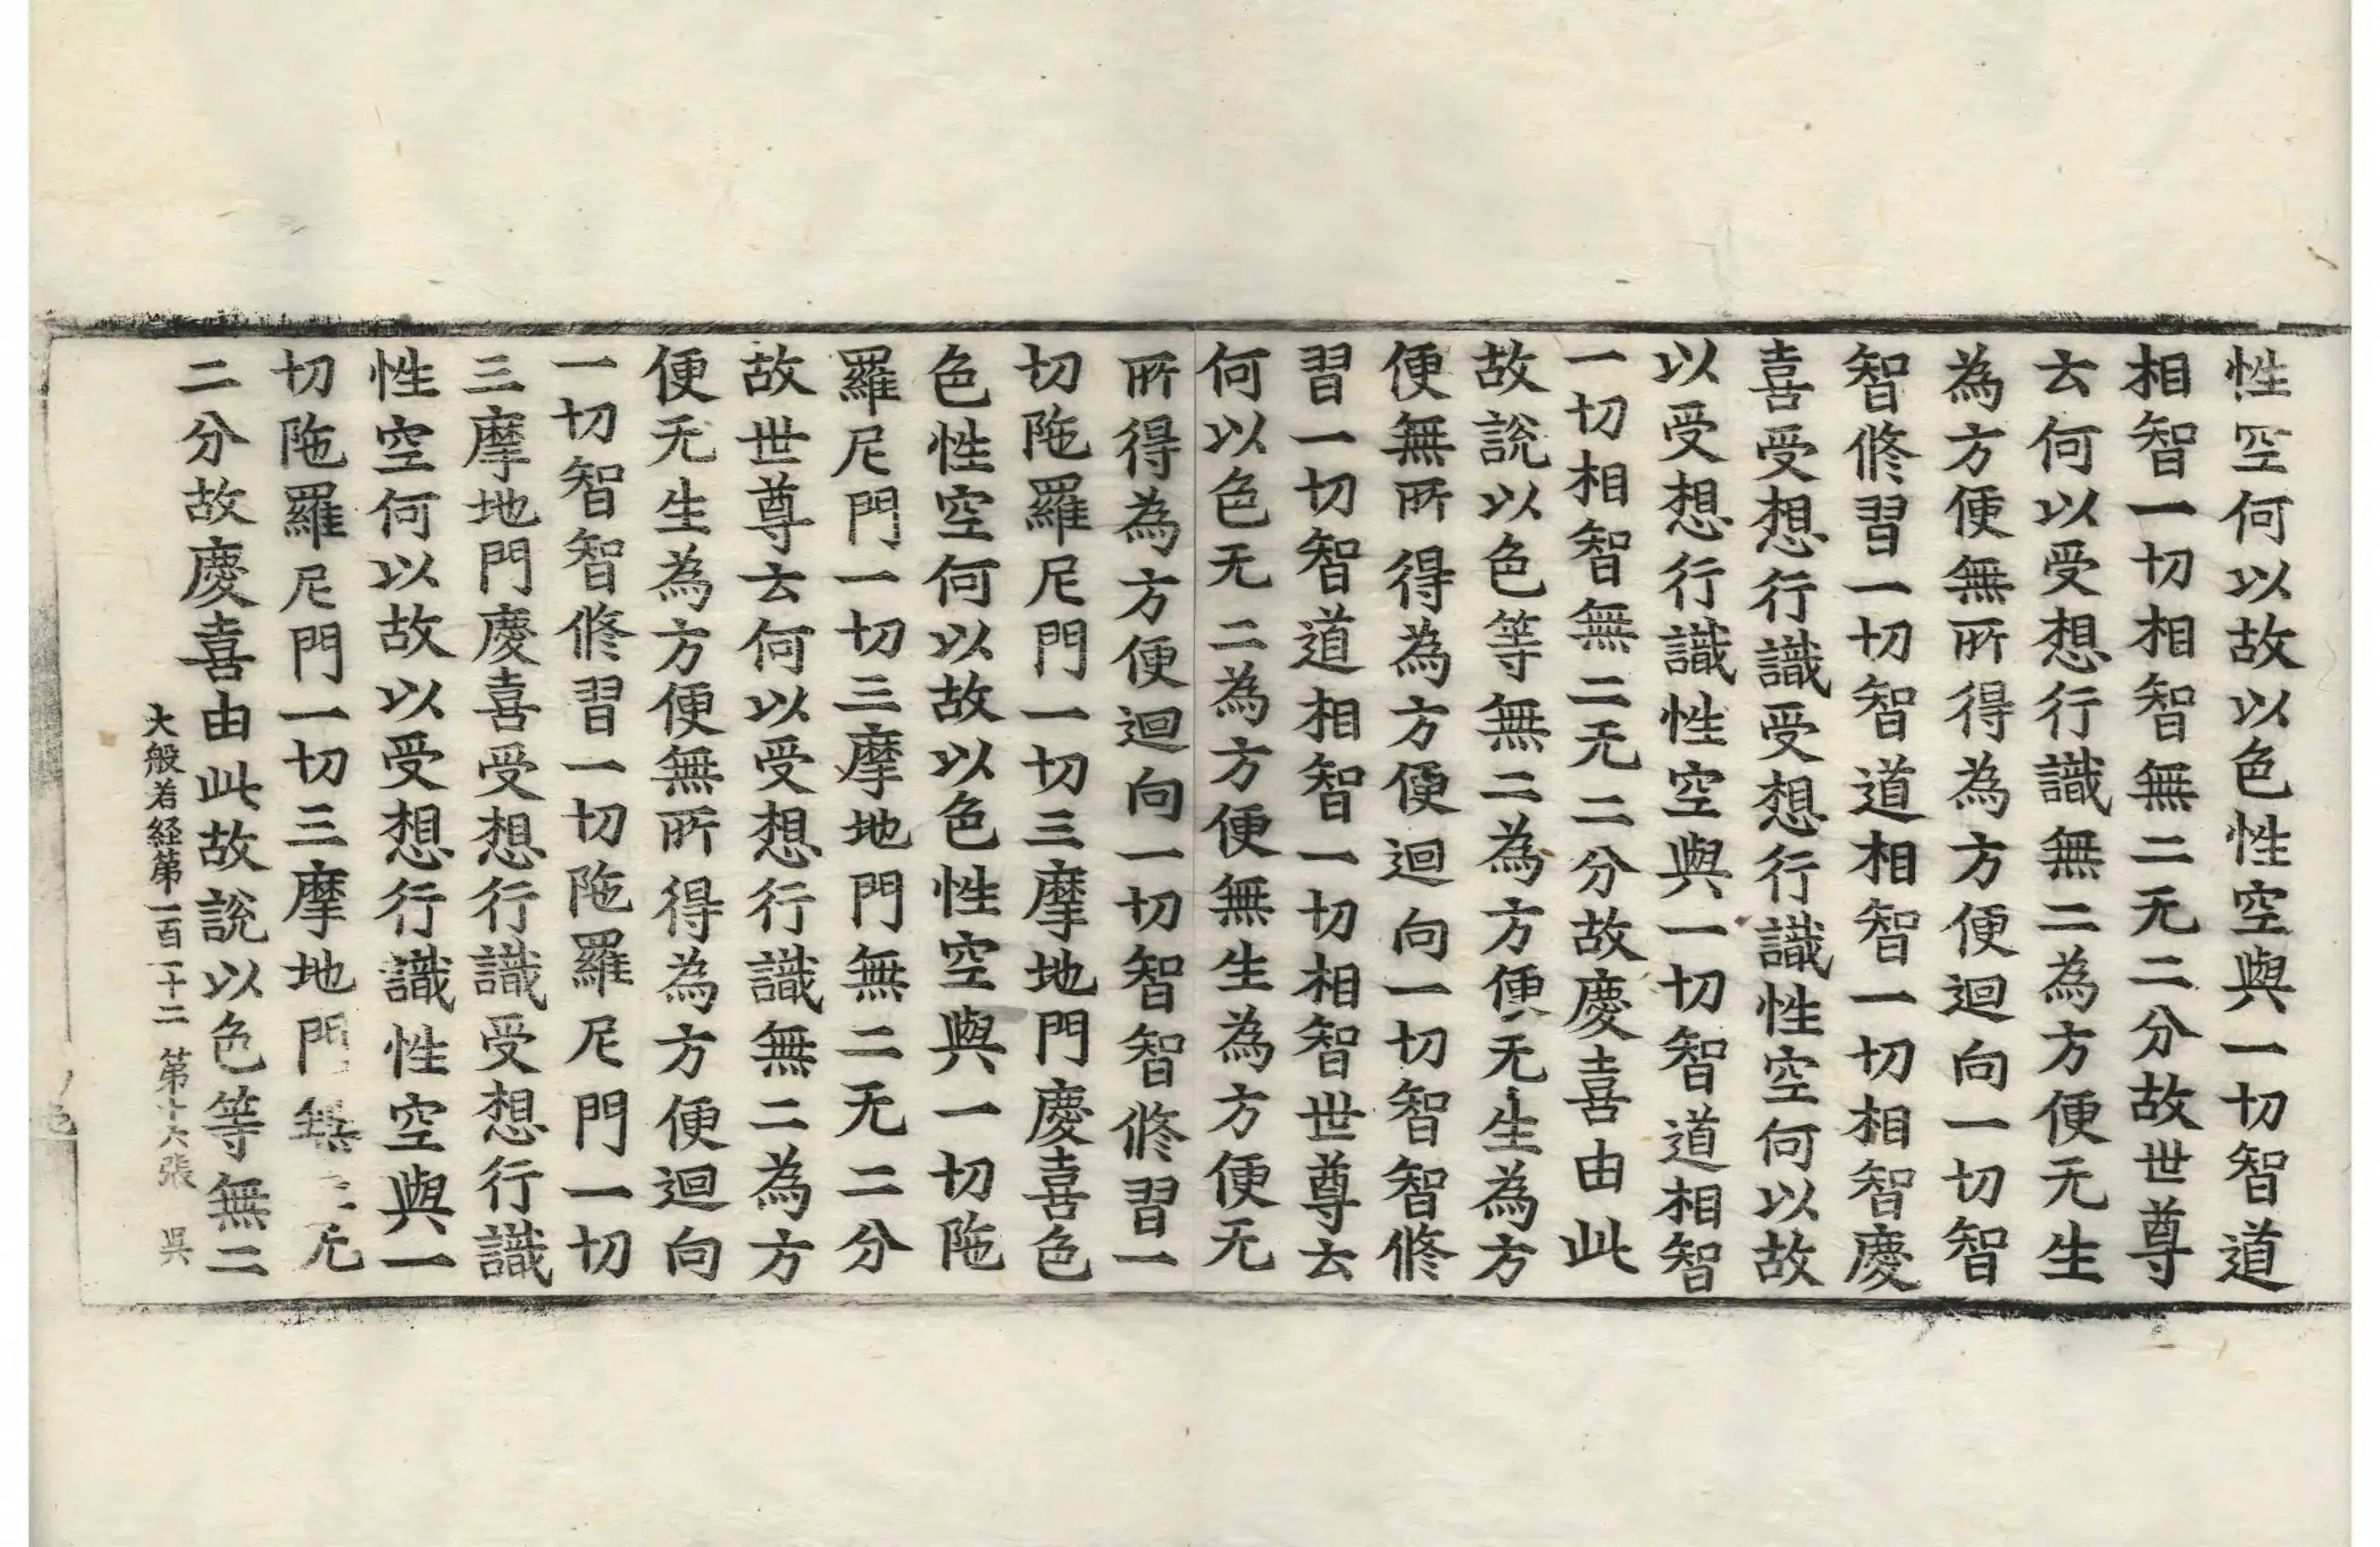 性空何以故以色性空與一切智道
相智一切相智無二无二分故世尊
云何以受想行識無二為方便无生
為方便無所得為方便迴向一切智
智修習一切智道相智一切相智慶
喜受想行識受想行識性空何以故
以受想行識性空與一切智道相智
一切相智無二无二分故慶喜由此
故說以色等無二為方便无生為方
便無所得為方便迴向一切智智修
習一切智道相智一切相智世尊云
何以色无二為方便無生為方便无
所得為方便迴向一切智智修習一
切陁羅尼門一切三摩地門慶喜色
色性空何以故以色性空與一切陁
羅尼門一切三摩地門無二无二分
故世尊云何以受想行識無二為方
便无生為方便無所得為方便迴向
一切智智修習一切陁羅尼門一切
三摩地門慶喜受想行識受想行識
性空何以故以受想行識性空與一
切陁羅尼門一切三摩地門無二无
二分故慶喜由此故說以色等無二
大般若經第一百一十二 第十六張 吳